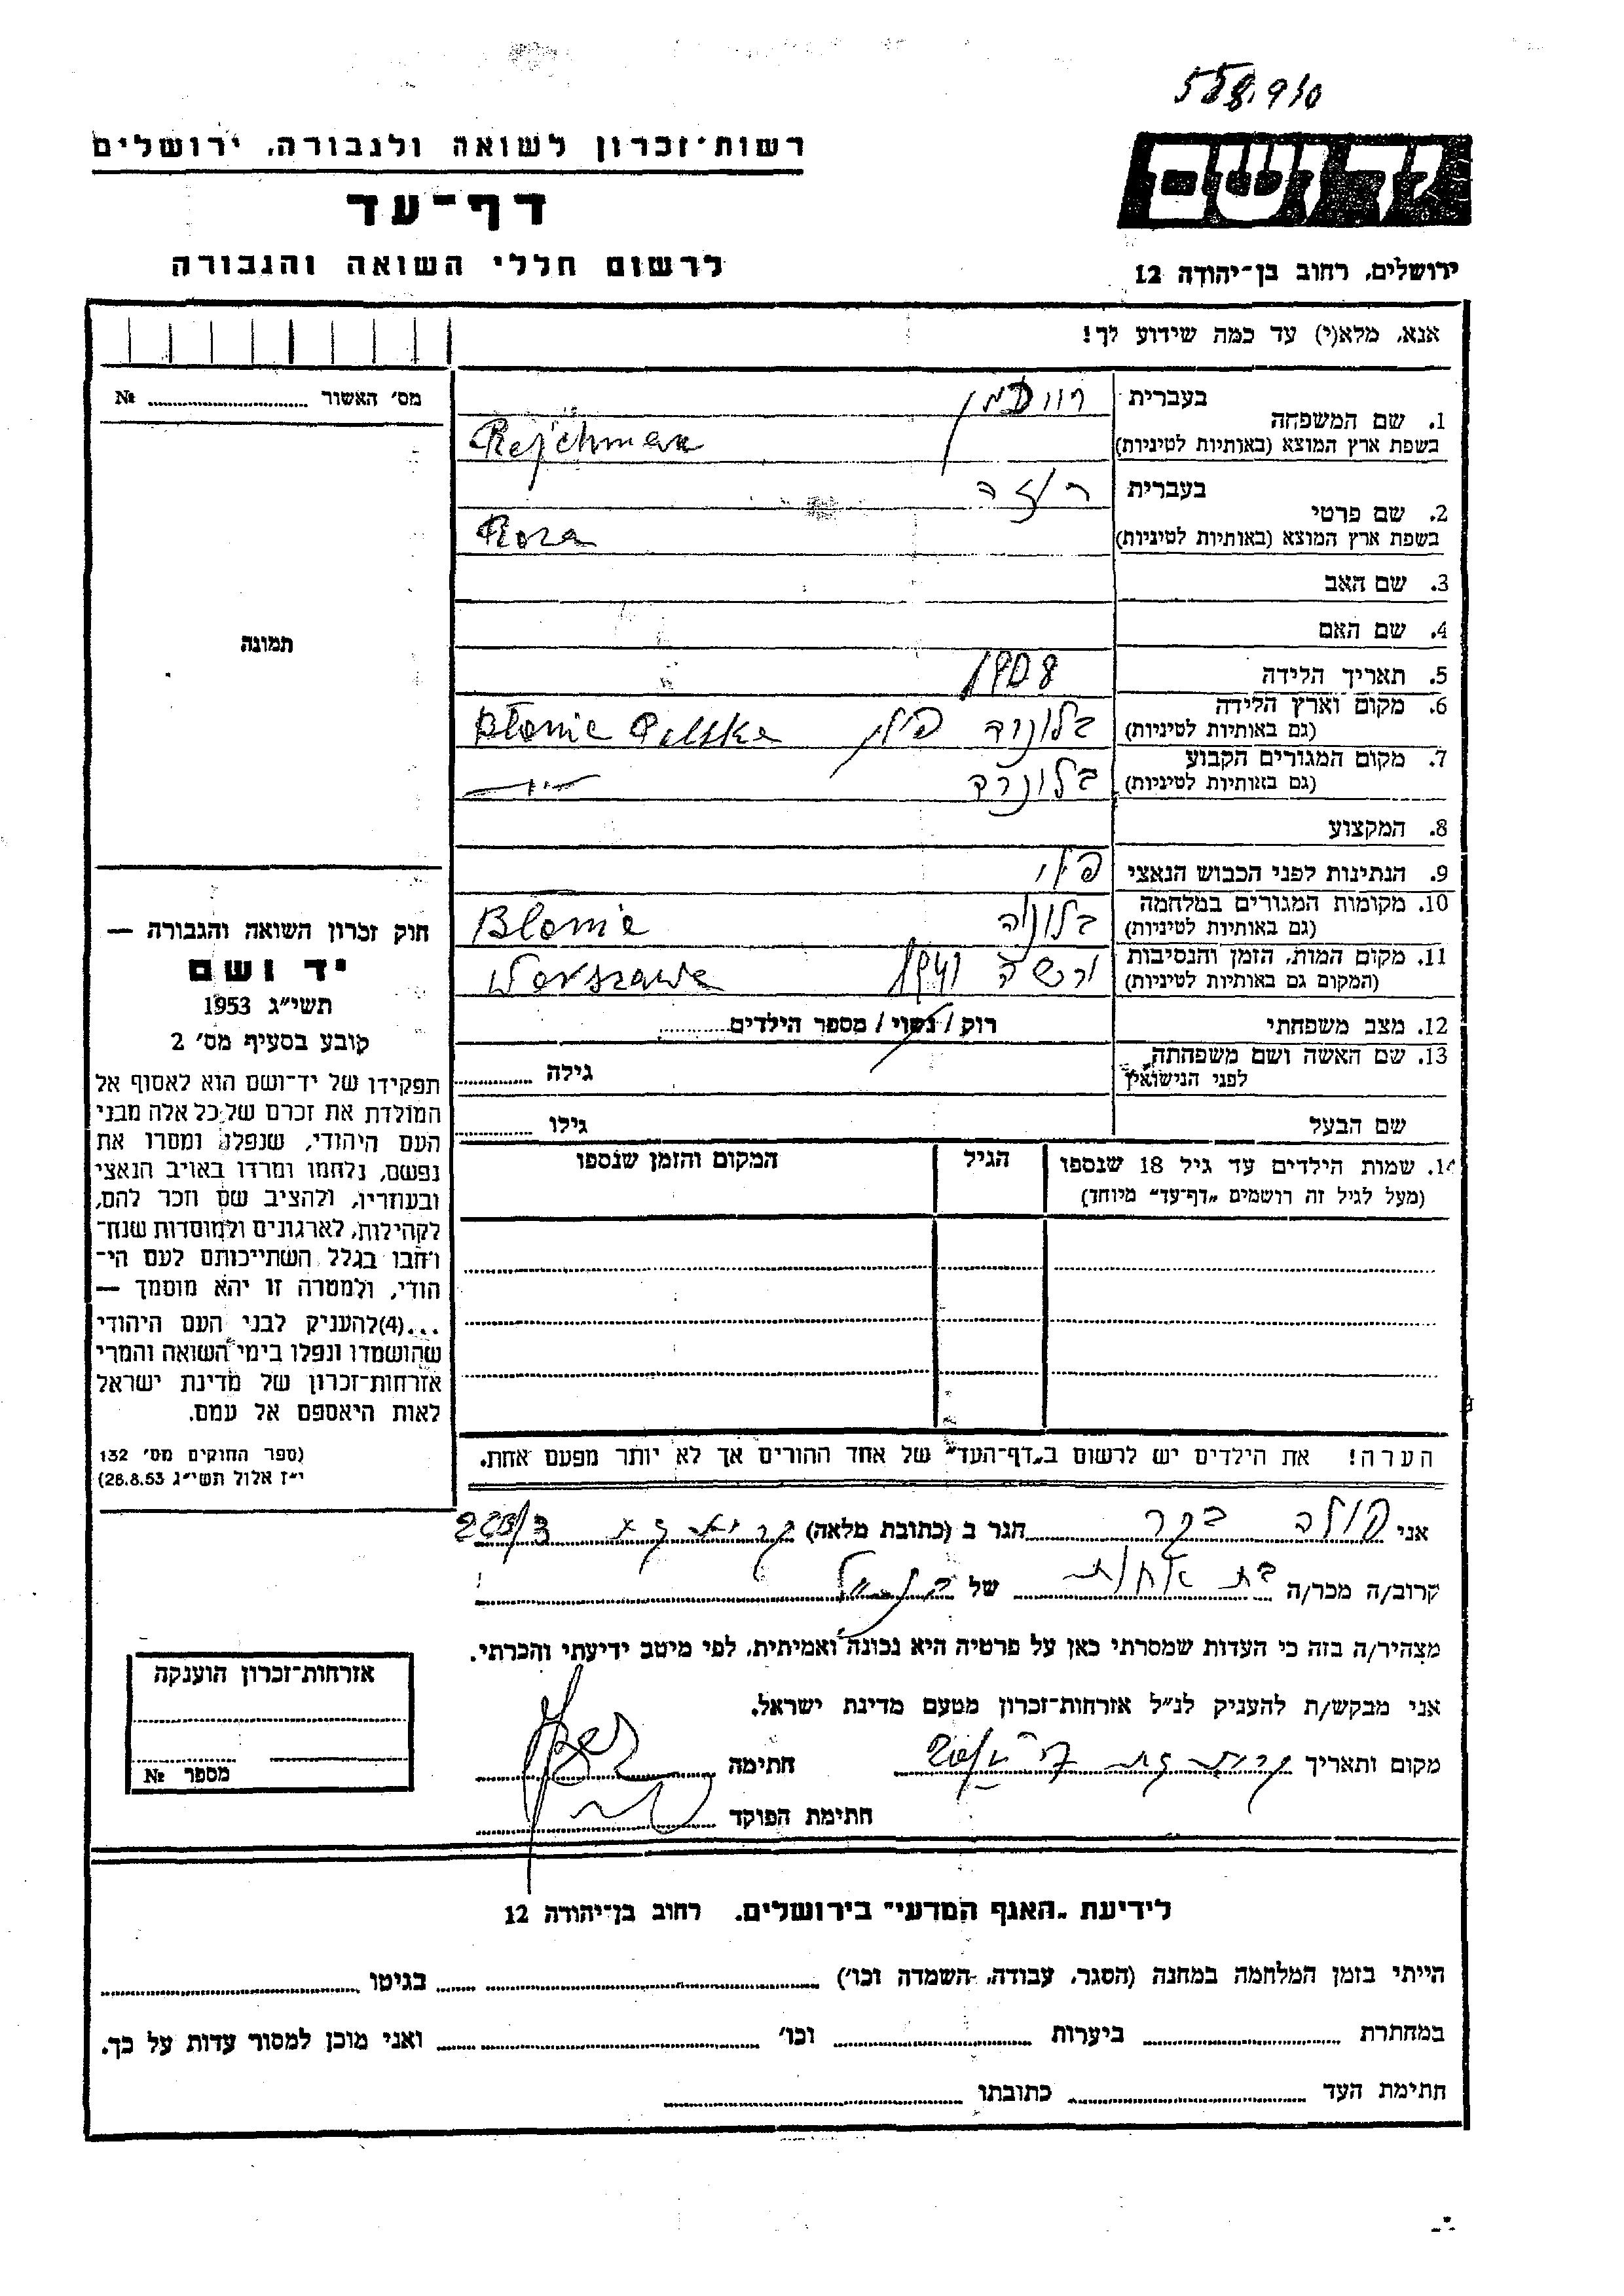 558910
רשות־זכרון לשואה ולגבורה, ירושלים
יד ושם
דף־עד
לרשום חללי השואה והגבורה
ירושלים, רחוב בן־יהודה 12
אנא, מלא(י) עד כמה שידוע לך!
מס׳ האשור № 
1. שם המשפחה
בעברית
בשפת ארץ המוצא (באותיות לטיניות) Rejchman
2. שם פרטי
בעברית רוזה
בשפת ארץ המוצא (באותיות לטיניות) Roza
3. שם האב
4. שם האם
תמונה
5. תאריך הלידה 1908
6. מקום וארץ הלידה
(גם באותיות לטיניות) בלוניה פולין Błonie Polska
7. מקום המגורים הקבוע
(גם באותיות לטיניות) בלוניה —״—
8. המקצוע
9. הנתינות לפני הכבוש הנאצי פולין
10. מקומות המגורים במלחמה
(גם באותיות לטיניות) בלוניה Blonie
11. מקום המות, הזמן והנסיבות
(המקום גם באותיות לטיניות) ורשה 1941 Warszawa
12. מצב משפחתי רוק / נשוי / מספר הילדים
13. שם האשה ושם משפחתה
לפני הנישואין גילה
שם הבעל גילו
14. שמות הילדים עד גיל 18 שנספו
(מעל לגיל זה רושמים „דף־עד״ מיוחד)
הגיל
המקום והזמן שנספו
חוק זכרון השואה והגבורה —
יד ושם
תשי״ג 1953
קובע בסעיף מס׳ 2
תפקידו של יד־ושם הוא לאסוף אל
המולדת את זכרם של כל אלה מבני
העם היהודי, שנפלו ומסרו את
נפשם, נלחמו ומרדו באויב הנאצי
ובעוזריו, ולהציב שם וזכר להם,
לקהילות, לארגונים ולמוסדות שנח־
רחבו בגלל השתייכותם לעם הי־
הודי, ולמטרה זו יהא מוסמך —
...(4)להעניק לבני העם היהודי
שהושמדו ונפלו בימי השואה והמרי
אזרחות־זכרון של מדינת ישראל
לאות היאספם אל עמם.
(ספר החוקים מס׳ 132
י״ז אלול תשי״ג 28.8.53)
הערה! את הילדים יש לרשום ב„דף־העד״ של אחד ההורים אך לא יותר מפעם אחת.
אני פולה בקר הגר ב (כתובת מלאה) קרית גת 203/3
קרוב/ה מכר/ה בת אחות של
מצהיר/ה בזה כי העדות שמסרתי כאן על פרטיה היא נכונה ואמיתית, לפי מיטב ידיעתי והכרתי.
אני מבקש/ת להעניק לנ״ל אזרחות־זכרון מטעם מדינת ישראל.
מקום ותאריך קרית גת חתימה
חתימת הפוקד
אזרחות־זכרון הוענקה
מספר №
לידיעת „האגף המדעי״ בירושלים. רחוב בן־יהודה 12
הייתי בזמן המלחמה במחנה (הסגר, עבודה, השמדה וכו׳) בגיטו
במחתרת ביערות וכו׳ ואני מוכן למסור עדות על כך.
חתימת העד כתובתו